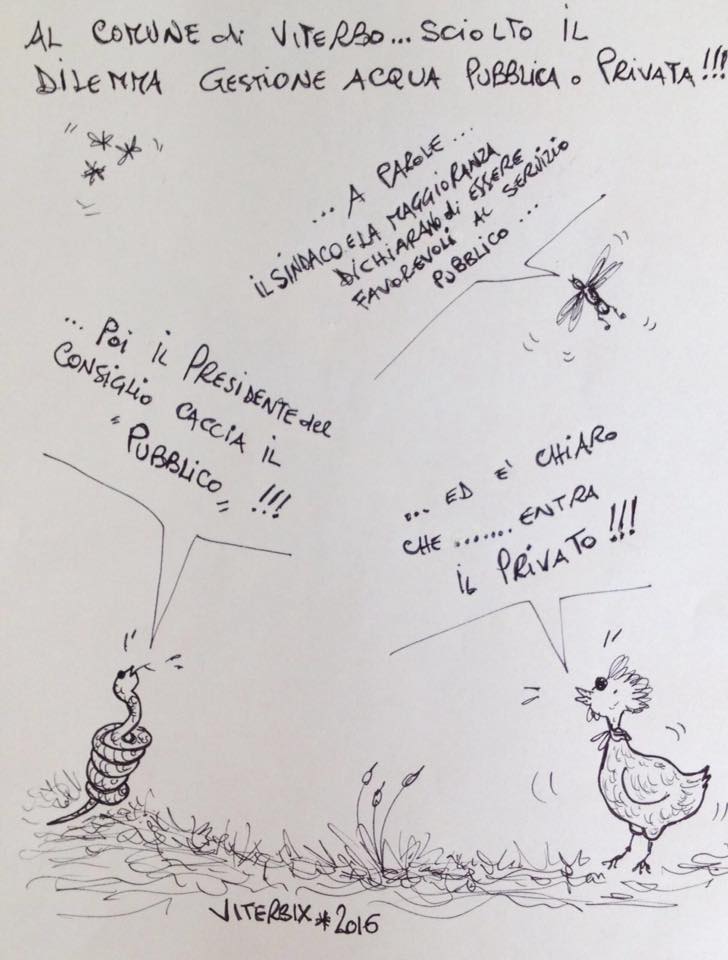 AL COMUNE di VITERBO... SCIOLTO IL
DILEMMA GESTIONE ACQUA PUBBLICA o PRIVATA!!!
... A PAROLE...
IL SINDACO E LA MAGGIORANZA
DICHIARANO di ESSERE
FAVOREVOLI AL SERVIZIO
PUBBLICO...
... POI IL PRESIDENTE del
CONSIGLIO CACCIA IL
"PUBBLICO" !!!
... ED E' CHIARO
CHE ....... ENTRA
IL PRIVATO!!!
VITERBIX * 2016